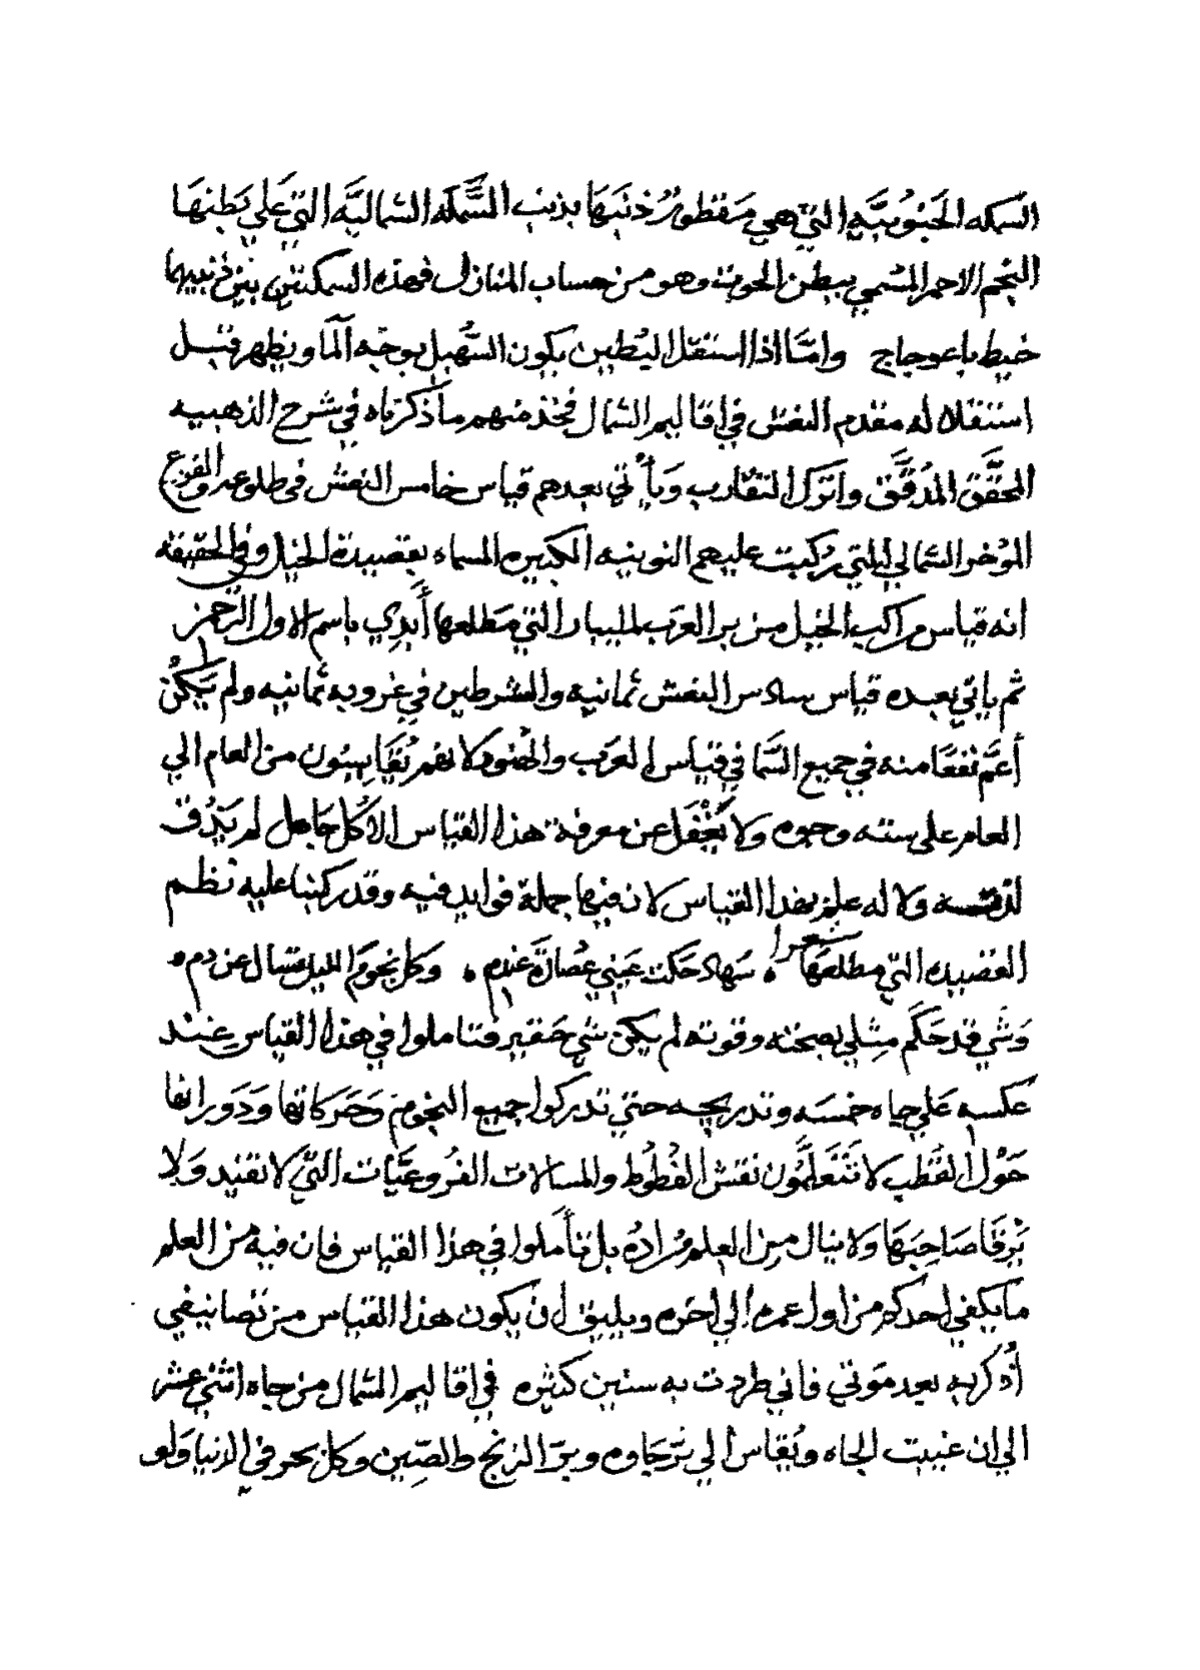 السمكه الجَنوُبيَّه التي هي مَقطورُ ذنَبَهَا بذنب السَّمكه الشماليَّه التي عَلي بَطنهَا
النجم الاحمر المُسمي ببطن الحوت وهو من حساب المنازل فهذه السمكتين بين ذنبيهما
خيط باعوجاج وامَّا اذا استقل البُطين يكون السُّهيل بوجْه المآ ويظهر قبل
استقلاله مقدم النعش في اقاليم الشمال فخذ منهم ما ذكرناه في شرح الذهبيه
المحقَّق المُدقَّق واترك التقارب وَيأتي بعدهم قياس خامس النعش في طلوعه والفرع
المؤخر الشمالي التي رُكبت عليهم النونيه الكبيره المسماه بقصيدة الخيل وفي الحقيقه
انه قياس مراكب الخيل من بر العرَب لمليبار التي مَطلعها أَبدِي باسم الاول الرَّحمن
ثم ياتي بعده قياس سادس النعش ثمانيه والشرطين في غروبه ثمانيه ولم يَكُنْ
أَعمَّ نفعًا منه في جميع السَّمَا في قياس العرَب والهُنود لانهم يُقَايسُون من العام الي
العام علي سته وجوه ولا يَغْفَل عن معرفة هذا القياس الا كُل جَاهل لم يَذُق
لذته ولا له علم بهذا القياس لان فيها جملة فوايد فيه وقد ركبنا عليه نظم
القصيده التي مطلعهَا شعرا ، سَهاد حَكت عَيني عُصَارَة عَندم ، وَكل نجومَ الليل تسال عن دم ،
وَشَي قد حَكَم مِثلي بصحته وقوته لم يكن شي حَقير فتاملوا في هذا القياس عِند
عكسه عَلي جاه خمسَه وتدريجه حتي تدركوا جميع النجوم وَحَركاتها وَدَوراتها
حَوْل القُطب لا تَتَعلَّمُون نقش الفُطُوط والمسالات الفُروعيَّات التي لا تفيد وَلا
يَرقَا صَاحِبَهَا وَلا ينال مِن العِلم مُرادُه بل تأَملوا في هذا القياس فان فيه من العلم
مَا يكفي احدكم من اول عمره إلي اخره ويليق ان يكون هذا القياس من تصانيفي
أُذكر به بعد مَوتي فاني طردت به سنين كثيره في اقاليم الشمال من جاه اثني عشر
الي ان غيبت الجاه ويُقاس الي برّ جَاوه وبرّ الزنج والصِّين وكل بحر في الدنيا وَلو